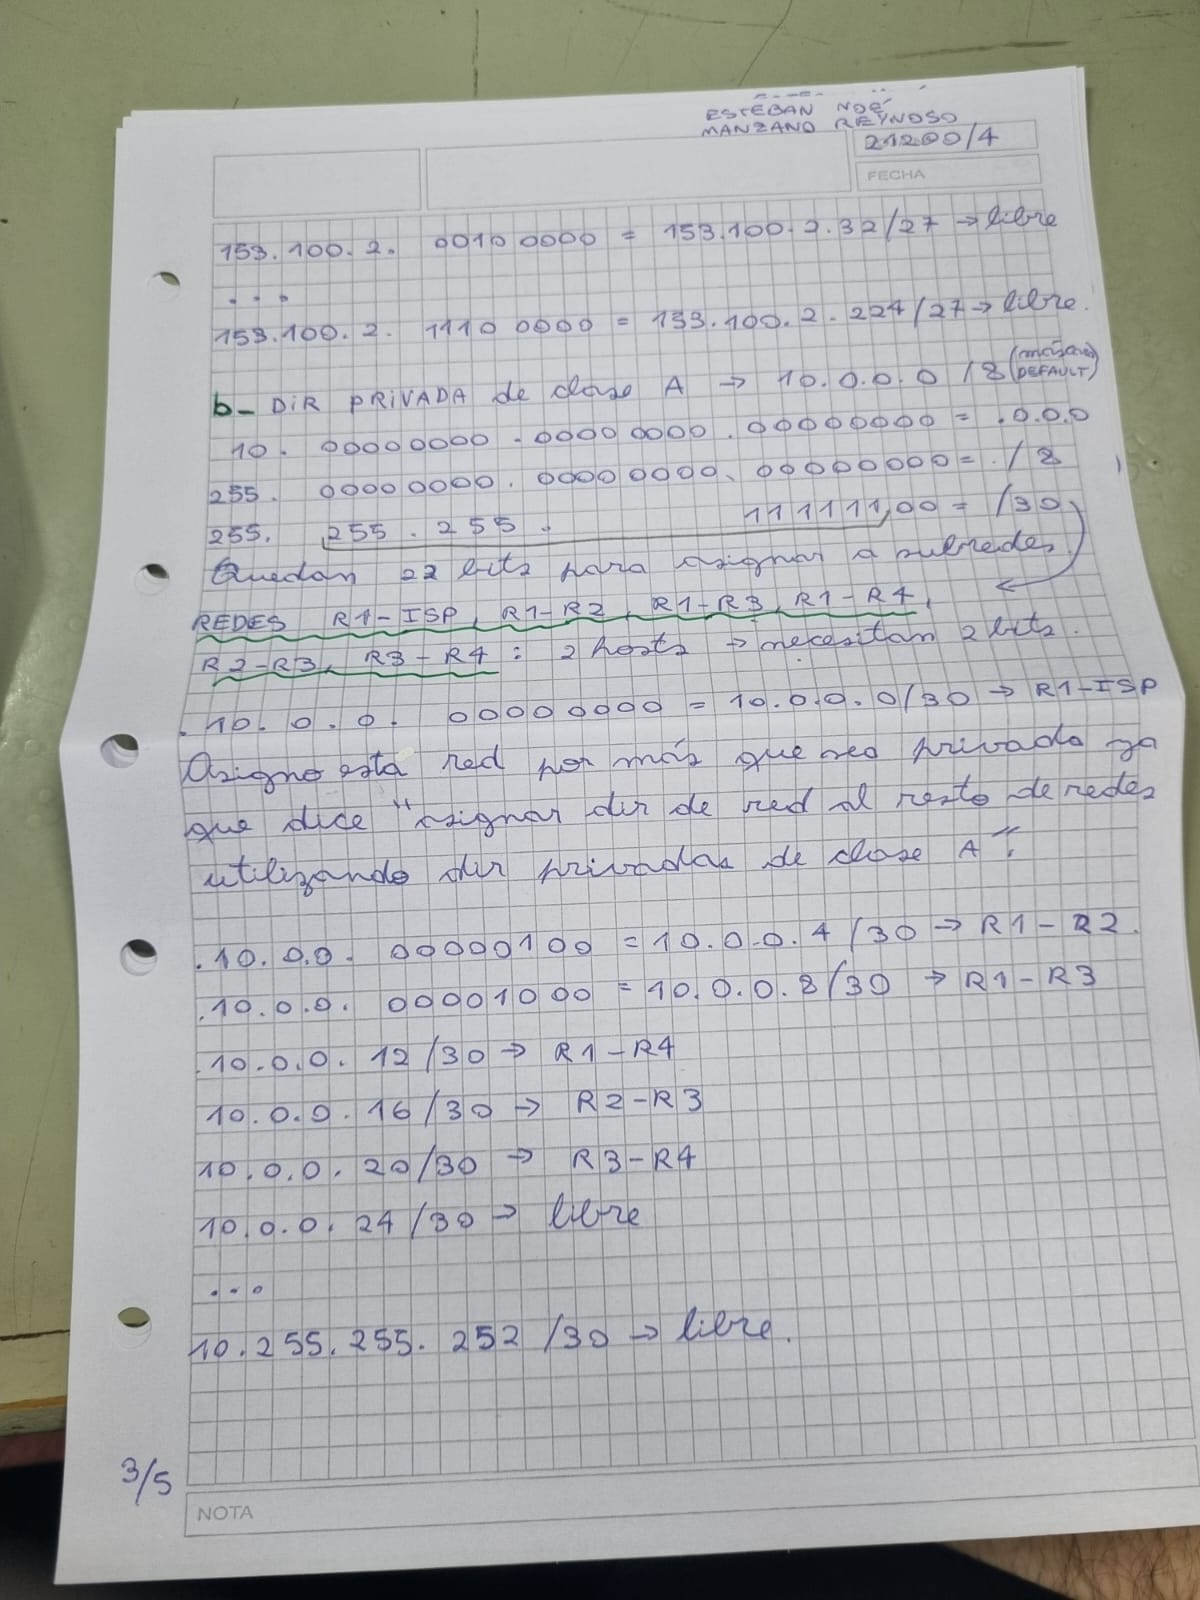 ESTEBAN NOÉ
MANZANO REYNOSO
21200/4
FECHA
153.100.2. 00100000 = 153.100.2.32/27 → libre
...
153.100.2. 11100000 = 153.100.2.224/27 → libre.
b- DIR PRIVADA de clase A → 10.0.0.0 /8 (máscara DEFAULT)
10. 00000000.00000000.00000000 = .0.0.0
255. 00000000.00000000.00000000 = ./8
255. 255.255. 111111,00 = /30
Quedan 22 bits para asignar a subredes
REDES R1-ISP, R1-R2, R1-R3, R1-R4,
R2-R3, R3-R4: 2 hosts → necesitan 2 bits.
.10.0.0. 00000000 = 10.0.0.0/30 → R1-ISP
Asigno esta red por más que sea privada ya
que dice "asignar dir de red al resto de redes
utilizando dir privadas de clase A".
.10.0.0. 00000100 = 10.0.0.4/30 → R1-R2.
.10.0.0. 00001000 = 10.0.0.8/30 → R1-R3
.10.0.0.12/30 → R1-R4
10.0.0.16/30 → R2-R3
10.0.0.20/30 → R3-R4
10.0.0.24/30 → libre
...
10.255.255.252/30 → libre.
3/5
NOTA